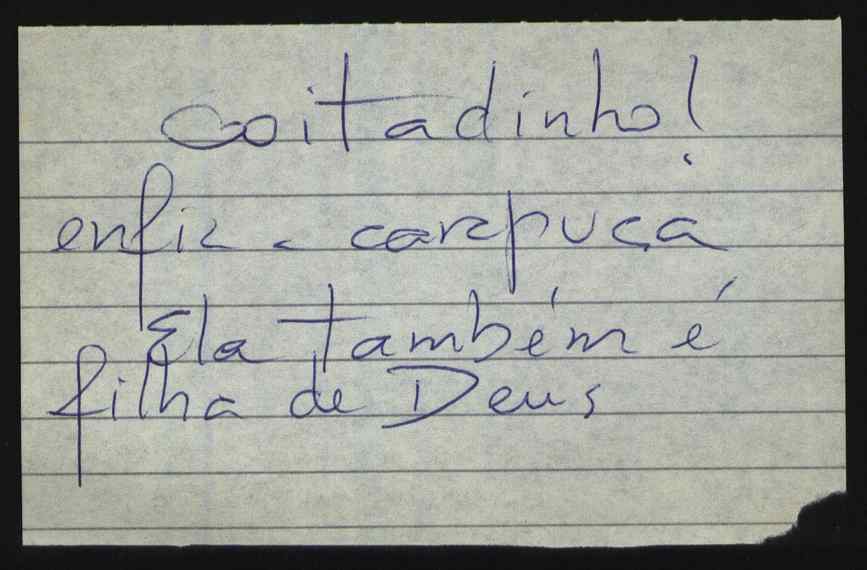 Coitadinho!
enfia a carapuça
Ela também é
filha de Deus